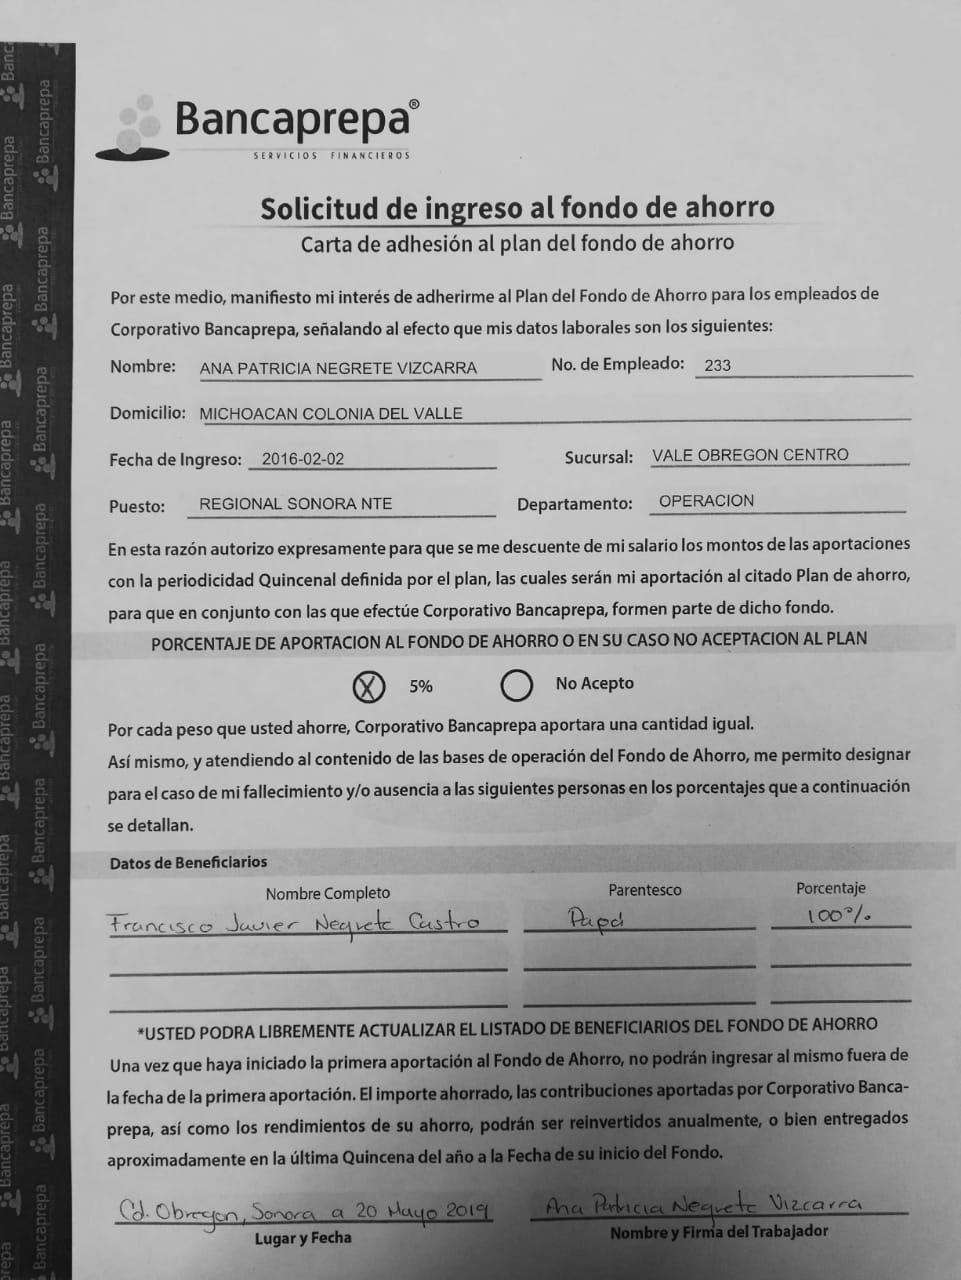 Bancaprepa®
SERVICIOS FINANCIEROS
Solicitud de ingreso al fondo de ahorro
Carta de adhesión al plan del fondo de ahorro
Por este medio, manifiesto mi interés de adherirme al Plan del Fondo de Ahorro para los empleados de
Corporativo Bancaprepa, señalando al efecto que mis datos laborales son los siguientes:
Nombre: ANA PATRICIA NEGRETE VIZCARRA No. de Empleado: 233
Domicilio: MICHOACAN COLONIA DEL VALLE
Fecha de Ingreso: 2016-02-02 Sucursal: VALE OBREGON CENTRO
Puesto: REGIONAL SONORA NTE Departamento: OPERACION
En esta razón autorizo expresamente para que se me descuente de mi salario los montos de las aportaciones
con la periodicidad Quincenal definida por el plan, las cuales serán mi aportación al citado Plan de ahorro,
para que en conjunto con las que efectúe Corporativo Bancaprepa, formen parte de dicho fondo.
PORCENTAJE DE APORTACION AL FONDO DE AHORRO O EN SU CASO NO ACEPTACION AL PLAN
X 5% No Acepto
Por cada peso que usted ahorre, Corporativo Bancaprepa aportara una cantidad igual.
Así mismo, y atendiendo al contenido de las bases de operación del Fondo de Ahorro, me permito designar
para el caso de mi fallecimiento y/o ausencia a las siguientes personas en los porcentajes que a continuación
se detallan.
Datos de Beneficiarios
Nombre Completo Parentesco Porcentaje
Francisco Javier Negrete Castro Papá 100%
*USTED PODRA LIBREMENTE ACTUALIZAR EL LISTADO DE BENEFICIARIOS DEL FONDO DE AHORRO
Una vez que haya iniciado la primera aportación al Fondo de Ahorro, no podrán ingresar al mismo fuera de
la fecha de la primera aportación. El importe ahorrado, las contribuciones aportadas por Corporativo Banca-
prepa, así como los rendimientos de su ahorro, podrán ser reinvertidos anualmente, o bien entregados
aproximadamente en la última Quincena del año a la Fecha de su inicio del Fondo.
Cd. Obregon, Sonora a 20 Mayo 2019 Ana Patricia Negrete Vizcarra
Lugar y Fecha Nombre y Firma del Trabajador